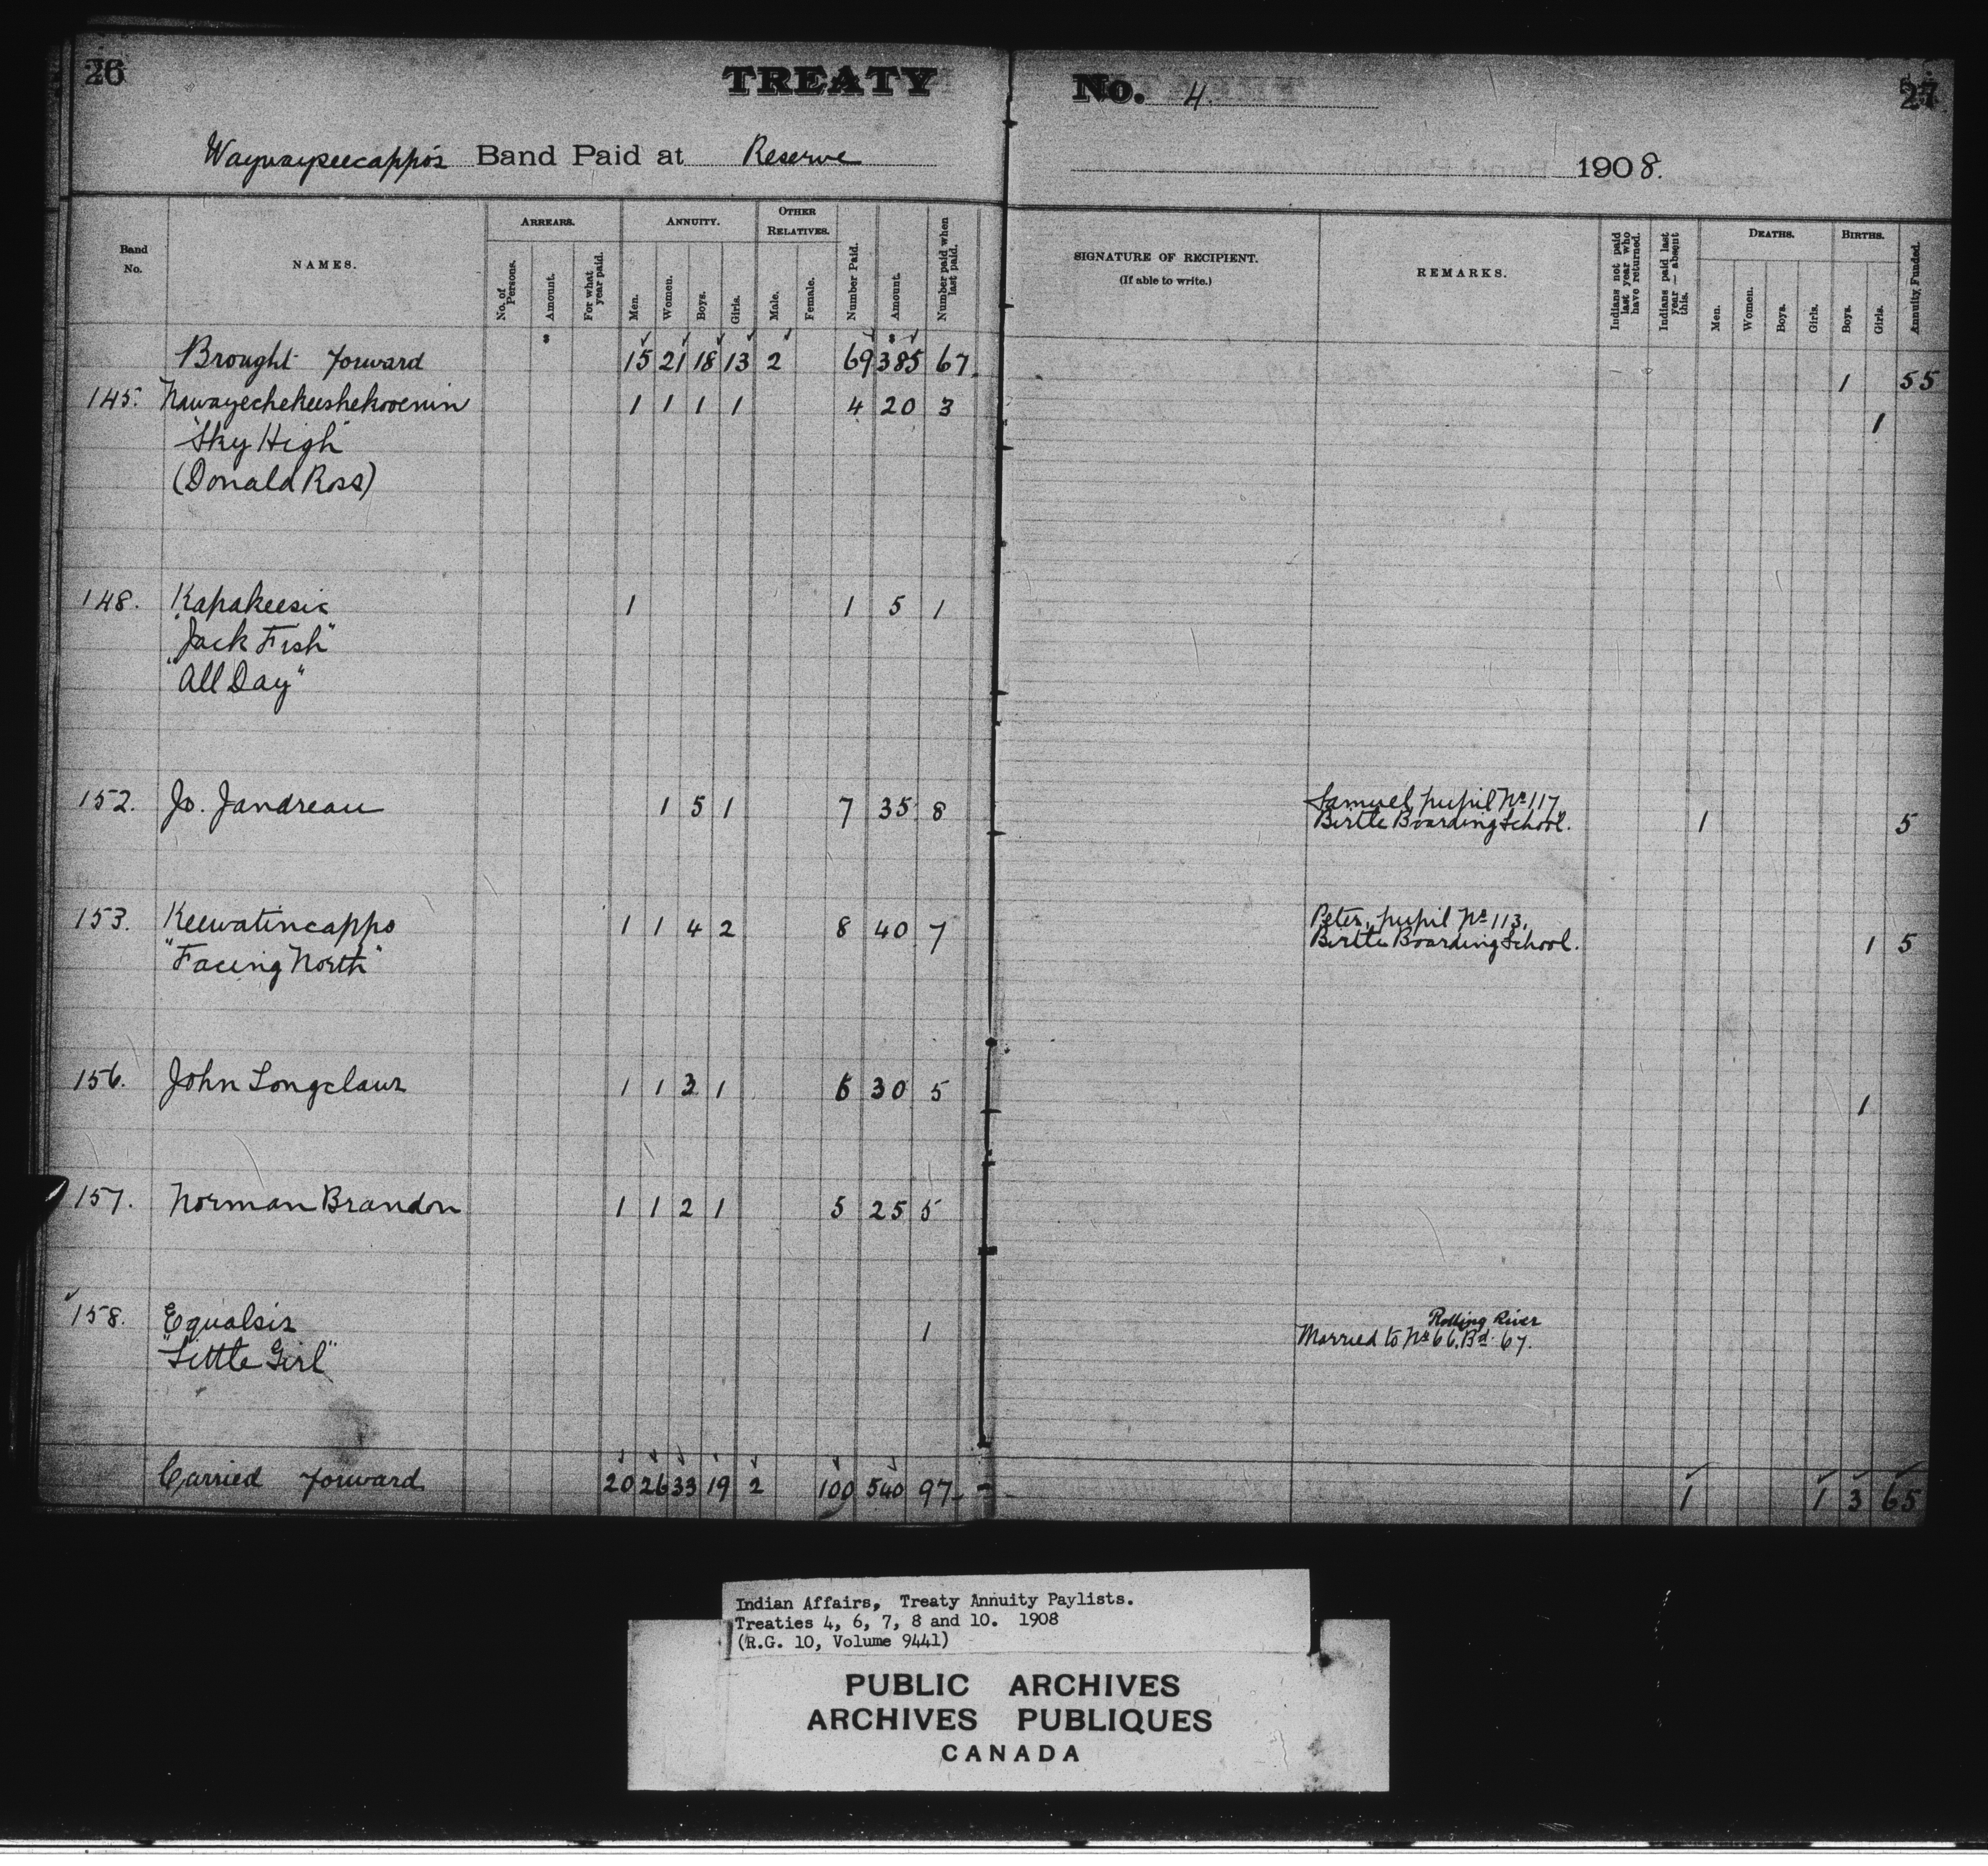 26
TREATY No. 4. 27
Waywayseecappo's Band Paid at Reserve 1908.
Band No. NAMES. ARREARS. No. of Persons. Amount. For what year paid. ANNUITY. Men. Women. Boys. Girls. OTHER RELATIVES. Male. Female. Number Paid. Amount. Number paid when last paid. SIGNATURE OF RECIPIENT. (If able to write.) REMARKS. Indians not paid last year who have returned. Indians paid last year — absent this. DEATHS. Men. Women. Boys. Girls. BIRTHS. Boys. Girls. Annuity, Funded.
Brought forward 15 21 18 13 2 69 385 67. 1 55
145. Nawayechekeeshekooenin 1 1 1 1 4 20 3 1
"Sky High"
(Donald Ross)
148. Kapakeesic 1 1 5 1
"Jack Fish"
"All Day"
152. Jo. Jandreau 1 5 1 7 35 8 Samuel, pupil No 117, 1 5
Birtle Boarding School.
153. Keewatincappo 1 1 4 2 8 40 7 Peter, pupil No 113, 1 5
"Facing North" Birtle Boarding School.
156. John Longclaws 1 1 3 1 6 30 5 1
157. Norman Brandon 1 1 2 1 5 25 5
158. Equalsis 1 Rolling River
"Little Girl" Married to No 66, Bd. 67.
Carried forward 20 26 33 19 2 100 540 97 1 1 3 65
Indian Affairs, Treaty Annuity Paylists.
Treaties 4, 6, 7, 8 and 10. 1908
(R.G. 10, Volume 9441)
PUBLIC ARCHIVES
ARCHIVES PUBLIQUES
CANADA